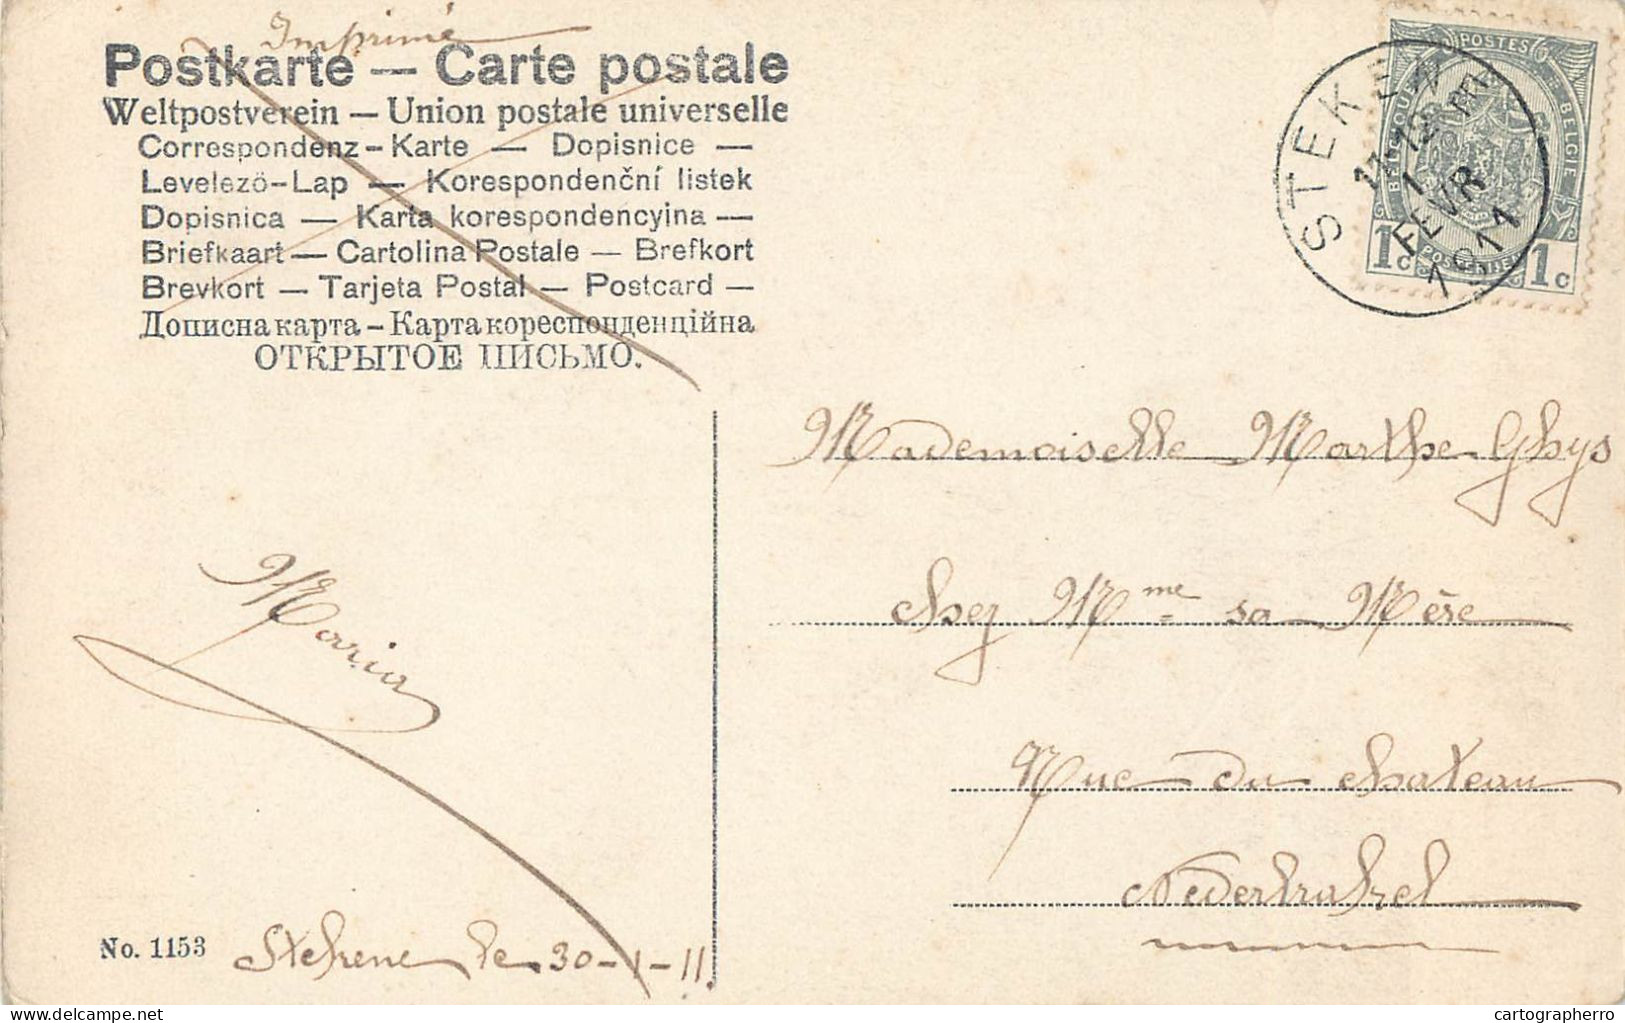 Imprimé
Postkarte — Carte postale
Weltpostverein — Union postale universelle
Correspondenz-Karte — Dopisnice —
Levelezö-Lap — Korespondenční listek
Dopisnica — Karta korespondencyjna —
Briefkaart — Cartolina Postale — Brefkort
Brevkort — Tarjeta Postal — Postcard —
Дописна карта — Карта кореспонденційна
ОТКРЫТОЕ ПИСЬМО.
POSTES
BELGIQUE BELGIË
POSTERIJEN
1c 1c
STEKENE
11-12
1
FEVR
1911
Mademoiselle Marthe Ghys
chez Mme sa Mère
Rue du chateau
Nederbrakel
Maria
No. 1153
Stekene le 30-1-11.
www.delcampe.net
cartographerro